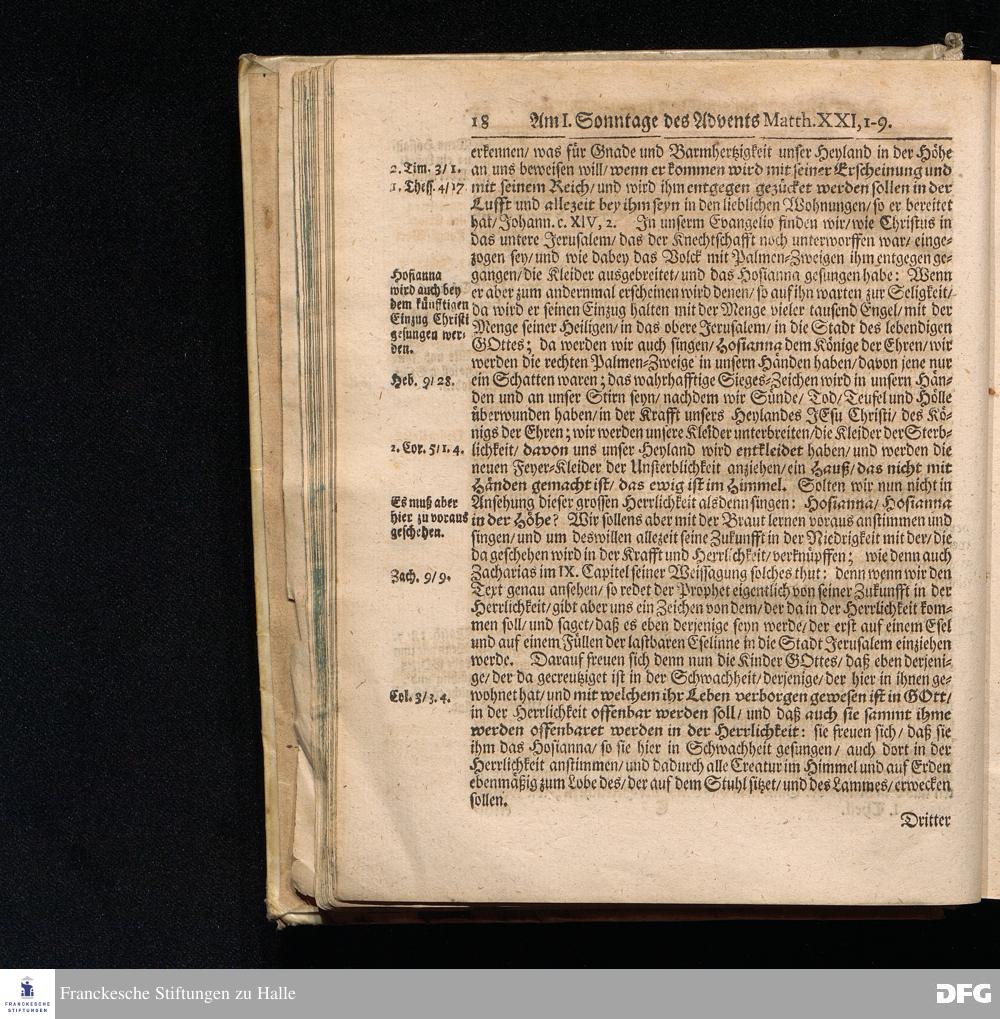 18 Am I. Sonntage des Advents Matth. XXI, 1-9.
erkennen/ was für Gnade und Barmhertzigkeit unser Heyland in der Höhe
2. Tim. 3/ 1.
an uns beweisen will/ wenn er kommen wird mit seiner Erscheinung und
1. Thess. 4/ 17.
mit seinem Reich/ und wird ihm entgegen gezücket werden sollen in der
Lufft und allezeit bey ihm seyn in den lieblichen Wohnungen/ so er bereitet
hat/ Johann. c. XIV, 2. In unserm Evangelio finden wir/ wie Christus in
das untere Jerusalem/ das der Knechtschafft noch unterworffen war/ einge-
zogen sey/ und wie dabey das Volck mit Palmen-Zweigen ihm entgegen ge-
gangen/ die Kleider ausgebreitet/ und das Hosianna gesungen habe: Wenn
er aber zum andernmal erscheinen wird denen/ so auf ihn warten zur Seligkeit/
da wird er seinen Einzug halten mit der Menge vieler tausend Engel/ mit der
Menge seiner Heiligen/ in das obere Jerusalem/ in die Stadt des lebendigen
GOttes; da werden wir auch singen/ Hosianna dem Könige der Ehren/ wir
werden die rechten Palmen-Zweige in unsern Händen haben/ davon jene nur
Hosianna
wird auch bey
dem künfftigen
Einzug Christi
gesungen wer-
den.
Heb. 9/ 28.
ein Schatten waren; das wahrhafftige Sieges-Zeichen wird in unsern Hän-
den und an unser Stirn seyn/ nachdem wir Sünde/ Tod/ Teufel und Hölle
überwunden haben/ in der Krafft unsers Heylandes JEsu Christi/ des Kö-
nigs der Ehren; wir werden unsere Kleider unterbreiten/ die Kleider der Sterb-
2. Cor. 5/ 1. 4.
lichkeit/ davon uns unser Heyland wird entkleidet haben/ und werden die
neuen Feyer-Kleider der Unsterblichkeit anziehen/ ein Hauß/ das nicht mit
Händen gemacht ist/ das ewig ist im Himmel. Solten wir nun nicht in
Ansehung dieser grossen Herrlichkeit alsdenn singen: Hosianna/ Hosianna
in der Höhe? Wir sollens aber mit der Braut lernen voraus anstimmen und
singen/ und um deswillen allezeit seine Zukunfft in der Niedrigkeit mit der/ die
Es muß aber
hier zu voraus
geschehen.
da geschehen wird in der Krafft und Herrlichkeit/ verknüpffen; wie denn auch
Zach. 9/ 9.
Zacharias im IX. Capitel seiner Weissagung solches thut: denn wenn wir den
Text genau ansehen/ so redet der Prophet eigentlich von seiner Zukunfft in der
Herrlichkeit/ gibt aber uns ein Zeichen von dem/ der da in der Herrlichkeit kom-
men soll/ und saget/ daß es eben derjenige seyn werde/ der erst auf einem Esel
und auf einem Füllen der lastbaren Eselinne in die Stadt Jerusalem einziehen
werde. Darauf freuen sich denn nun die Kinder GOttes/ daß eben derjeni-
ge/ der da gecreutziget ist in der Schwachheit/ derjenige/ der hier in ihnen ge-
Col. 3/ 3. 4.
wohnet hat/ und mit welchem ihr Leben verborgen gewesen ist in GOtt/
in der Herrlichkeit offenbar werden soll/ und daß auch sie sammt ihme
werden offenbaret werden in der Herrlichkeit: sie freuen sich/ daß sie
ihm das Hosianna/ so sie hier in Schwachheit gesungen/ auch dort in der
Herrlichkeit anstimmen/ und dadurch alle Creatur im Himmel und auf Erden
ebenmäßig zum Lobe des/ der auf dem Stuhl sitzet/ und des Lammes/ erwecken
sollen.
Dritter
FRANCKESCHE
STIFTUNGEN
Franckesche Stiftungen zu Halle
DFG